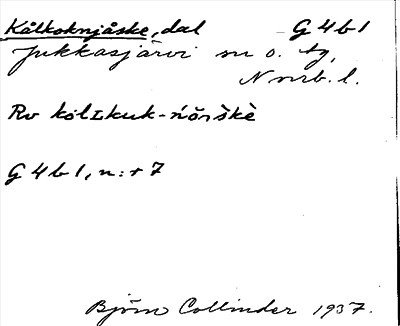 Kålkoknjåske, dal G 4 b 1
Jukkasjärvi sn o. tg,
N mrb. l.
Rv kolıkuk-ńŏrškè
G 4 b 1, n:r 7
Björn Collinder 1937.